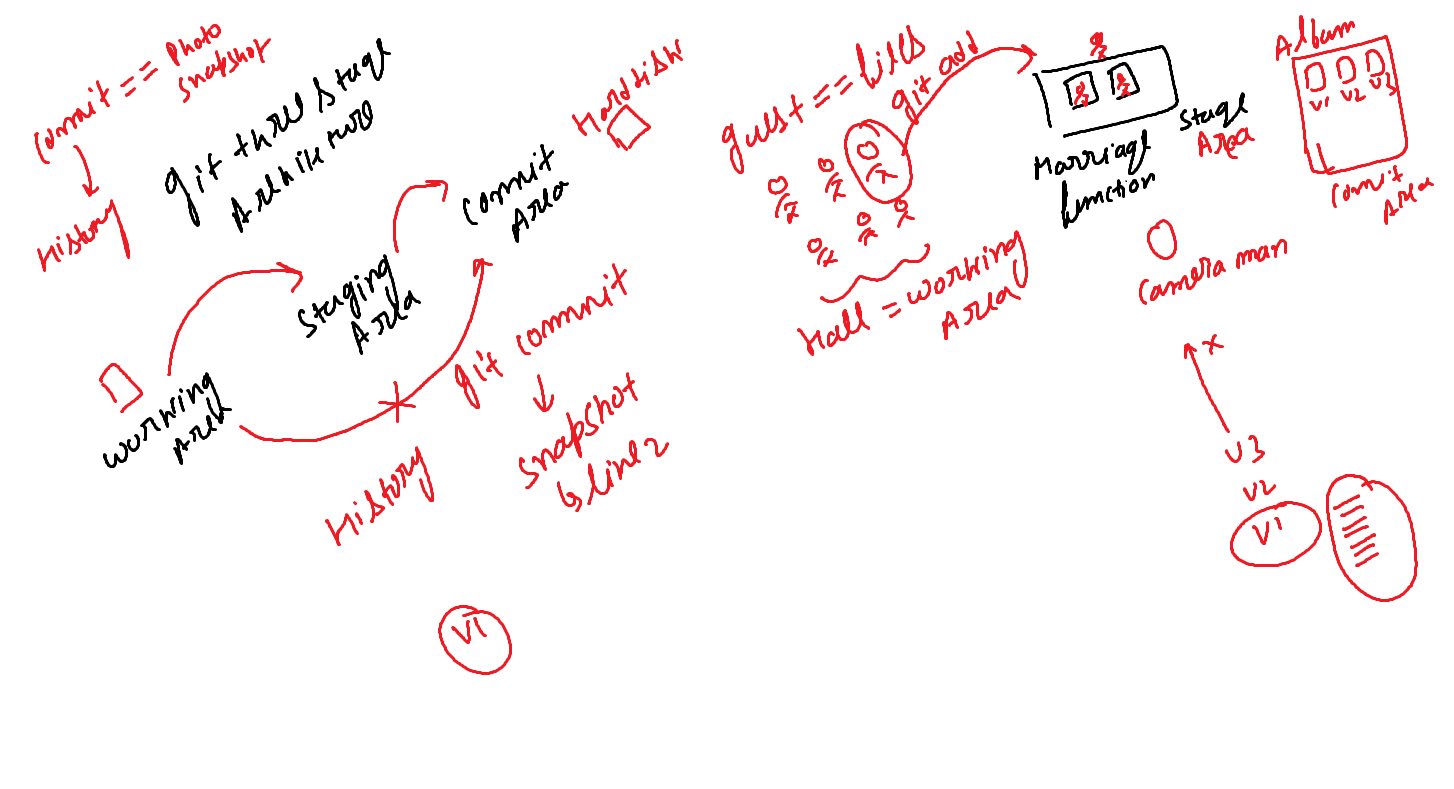 commit == Photo
snapshot
History
git three stage
Arehitecture
Harddisk
commit
Area
staging
Area
working
Area
git commit
snapshot
line2
History
V1
guest == files
git add
Hall = working
Area
Marriage
function
stage
Area
Album
V1 V2 V3
Comit
Area
camera man
x
V3
V2
V1